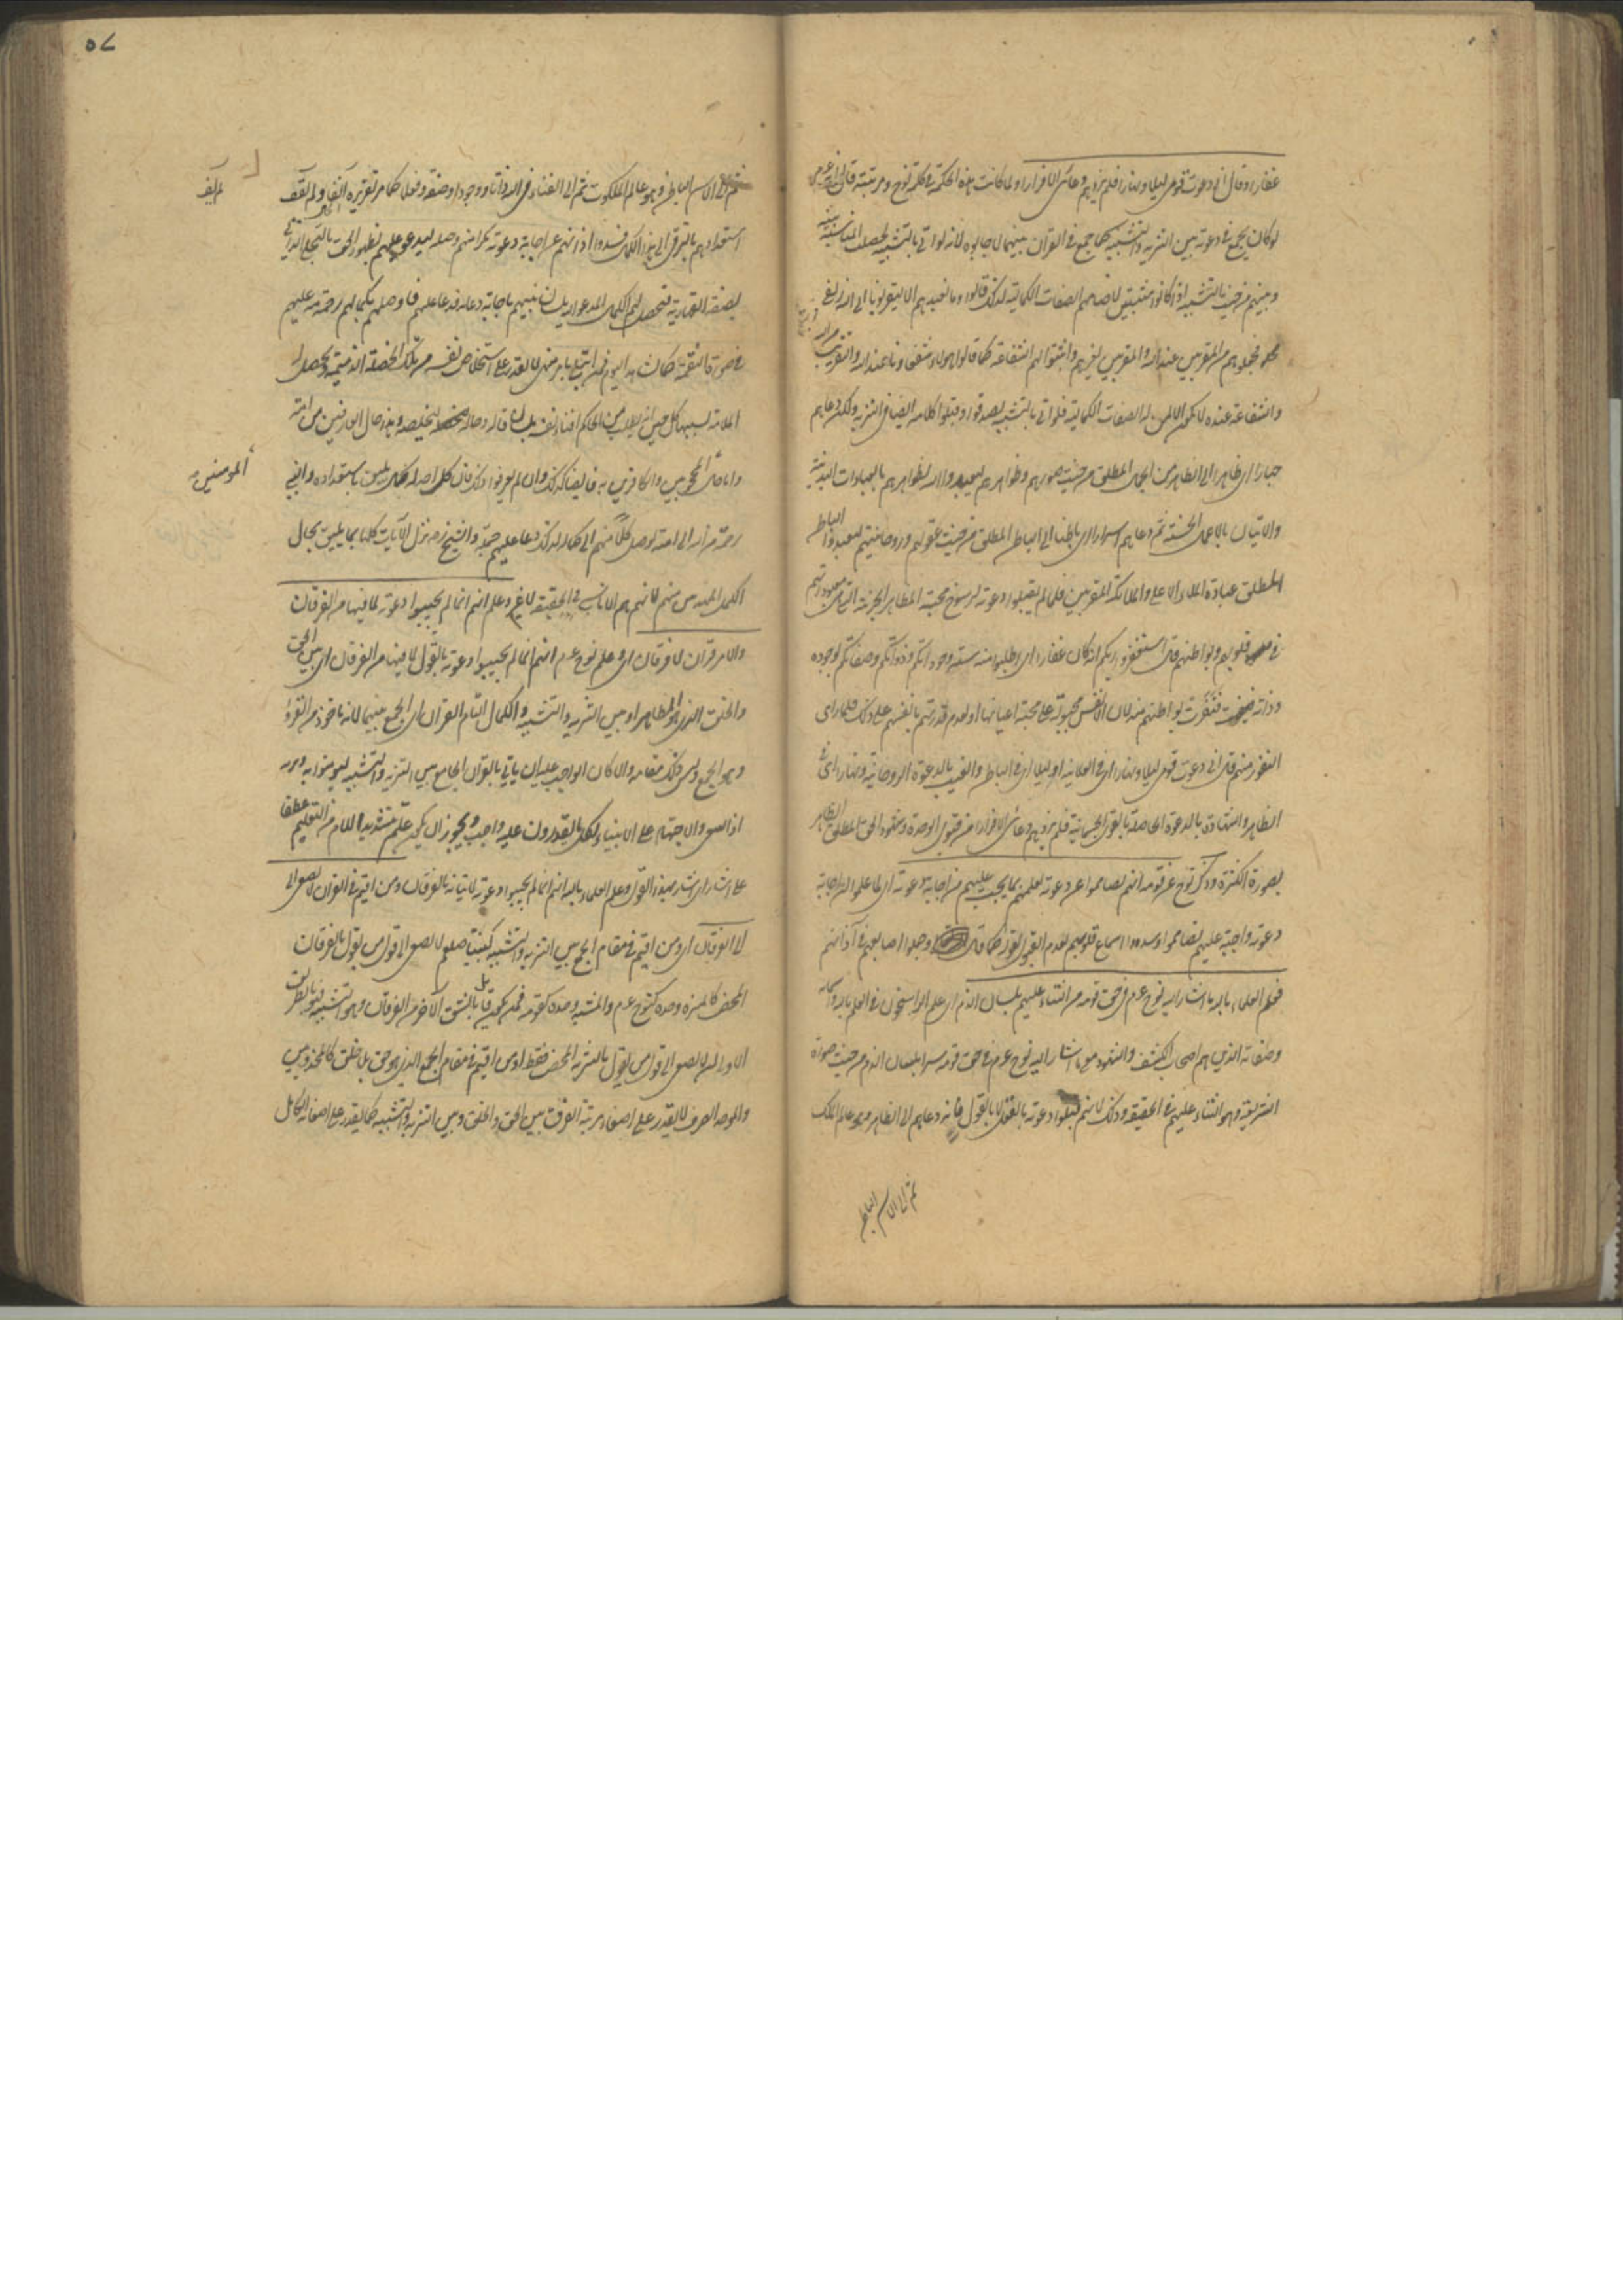 غفارا وقال انى دعوت قومى ليلا ونهارا فلم يزدهم دعائى الا فرارا ولما كانت هذه الحكمة فى كلمة نوح ومرتبته قال لو ان نوحا عم
لو كان يجمع فى دعوته بين التنزيه والتشبيه كما جمع فى القرآن بينهما لاجابوه لانه لو اتى بالتشبيه لحصلت المناسبة بينه
وبينهم من حيث التشبيه اذ كانوا مثبتين لاصنامهم الصفات الكمالية لذلك قالوا وما نعبدهم الا ليقربونا الى الله زلفى
فجعلوهم من المقربين عند الله والمقربين لغيرهم واثبتوا لهم الشفاعة كما قالوا هؤلاء شفعاؤنا عند الله والتقريب من الله
والشفاعة عنده لا يكون الا لمن له الصفات الكمالية فلو اتى بالتشبيه لصدقوه وقبلوا كلامه ايضا فى التنزيه ولكن دعاهم
جهارا اى ظاهرا الى الظاهر من اسماء المطلق من حيث صورهم وظواهرهم ليعبدوا الله بظواهرهم بالعبادات البدنية
والاتيان بالاعمال الحسنة ثم دعاهم اسرارا اى باطنا الى الباطن المطلق من حيث عقولهم وروحانيتهم ليعبدوا الباطن
المطلق عبادة الملاء الاعلى والملائكة المقربين فلما لم يقبلوا دعوته لرسوخ محبة المظاهر الجزئية التى هى معبوداتهم
فى قلوبهم وبواطنهم قال استغفروا ربكم انه كان غفارا اى اطلبوا منه ستر وجوداتكم وذواتكم وصفاتكم بوجوده
وذاته فنفرت بواطنهم منه لان الانفس مجبولة على محبة اعيانها او لعدم قدرتهم بانفسهم على ذلك فلما راى
النفور منهم قال انى دعوت قومى ليلا ونهارا اى فى العلانية او ليلا اى فى الباطن والغيب بالدعوة الروحانية ونهارا اى فى
الظاهر والشهادة بالدعوة الحاصلة بالقوى الجسمانية فلم يزدهم دعائى الا فرارا من قبول الوحدة وشهود الحق المطلق الظاهر
بصورة الكثرة وذكر نوح عن قومه انهم تصامموا عن دعوته لعلمهم بما يجب عليهم من اجابة دعوته اى لما علموا ان اجابة
دعوته واجبة عليهم تصامموا وسدوا اسماع قلوبهم لعدم القبول لقوله كما قال وجعلوا اصابعهم فى آذانهم
فعلم العلماء بالله ما اشار اليه نوح عم فى حق قومه من الثناء عليهم بلسان الذم اى علم الراسخون فى العلم بالله واسمائه
وصفاته الذين هم اصحاب الكشف والشهود معنى ما اشار اليه نوح عم فى حق قومه سرا بلسان الذم من حيث صورة
الشريعة وهو الثناء عليهم فى الحقيقة وذلك لانهم قبلوا دعوته بالفعل لا بالقول فانه دعاهم الى الظاهر وهو عالم الملك
ثم الى الاسم الباطن
٥٧
ثم الى الاسم الباطن وهو عالم الملكوت ثم الى الفناء فى الله ذاتا ووجودا وصفة وفعلا كما مر تقريره آنفا ولم يقف
لم يف
استعدادهم بالترقى الى هذا الكمال فسدوا آذانهم عن اجابة دعوته مكرا منهم وحيلة ليدعو عليهم بظهور الحق بالتجلى الذاتى
بصفة القهارية فتحصل لهم الكمال المدعو اليه بلسان نبيهم باجابة دعائه فدعا عليهم فاوصلهم بكمالهم رحمة منه عليهم
فى صورة النقمة كما نشاهد اليوم فيمن ابتلى بامر منهى لا يقدر على استخلاص نفسه من تلك الخصلة الذميمة ويحصل له
الملامة بسببها كل حين انه يطلب من الحاكم افناء نفسه بلسان قاله وحاله ليخلصه وهذا حال العارفين من امته
واما حال المحجوبين والكافرين به فايضا كذلك وان لم يعرفوا ذلك فان لكل احد كمالا يليق باستعداده والنبى
المؤمنين
رحمة من الله الى امته يوصل كلا منهم الى كماله لذلك دعا عليهم جميعا والشيخ رض نزل الآيات كلها بما يليق بحال
الكمل المهتدين منهم لانهم هم الاناس فى الحقيقة لا غيرهم وعلم انهم انما لم يجيبوا دعوته لما فيها من الفرقان
والامر قرآن لا فرقان اى وعلم نوح عم انهم انما لم يجيبوا دعوته بالقول لما فيها من الفرقان اى بين الحق
والخلق الذى هو المظاهر او بين التنزيه والتشبيه والكمال التام القرآن اى الجمع بينهما لانه ماخوذ من القرء
وهو الجمع وليس ذلك مقامه والا كان الواجب عليه ان ياتى بالقرآن الجامع بين التنزيه والتشبيه ليؤمنوا به وبربه
اذ السعى والاجتهاد على الانبياء بكل ما يقدرون عليه واجب ويجوز ان يكون علم مشددة اللام من التعليم عطفا
على اشار اى اشار بهذا القول وعلم العلماء بالله انهم انما لم يجيبوا دعوته لاتيانه بالفرقان ومن اقيم فى القرآن لا يصغى الى
الى الفرقان اى ومن اقيم فى مقام الجمع بين التنزيه والتشبيه كنبينا صلعم لا يصغى الى قول من يقول بالفرقان
المحض كالمنزه وحده كنوح عم والمشبه وحده كقومه فمن يكون قائلا بالشق الآخر من الفرقان وهو التشبيه فهو بالطريق
الاولى ان لا يصغى الى قول من يقول بالتنزيه المحض فقط او من اقيم فى مقام الجمع الذى هو حق بلا خلق كالمجذوبين
والموحد الصرف لا يقدر على اصغاء مرتبة الفرق بين الحق والخلق وبين التنزيه والتشبيه كما يقدر على اصغائه الكامل